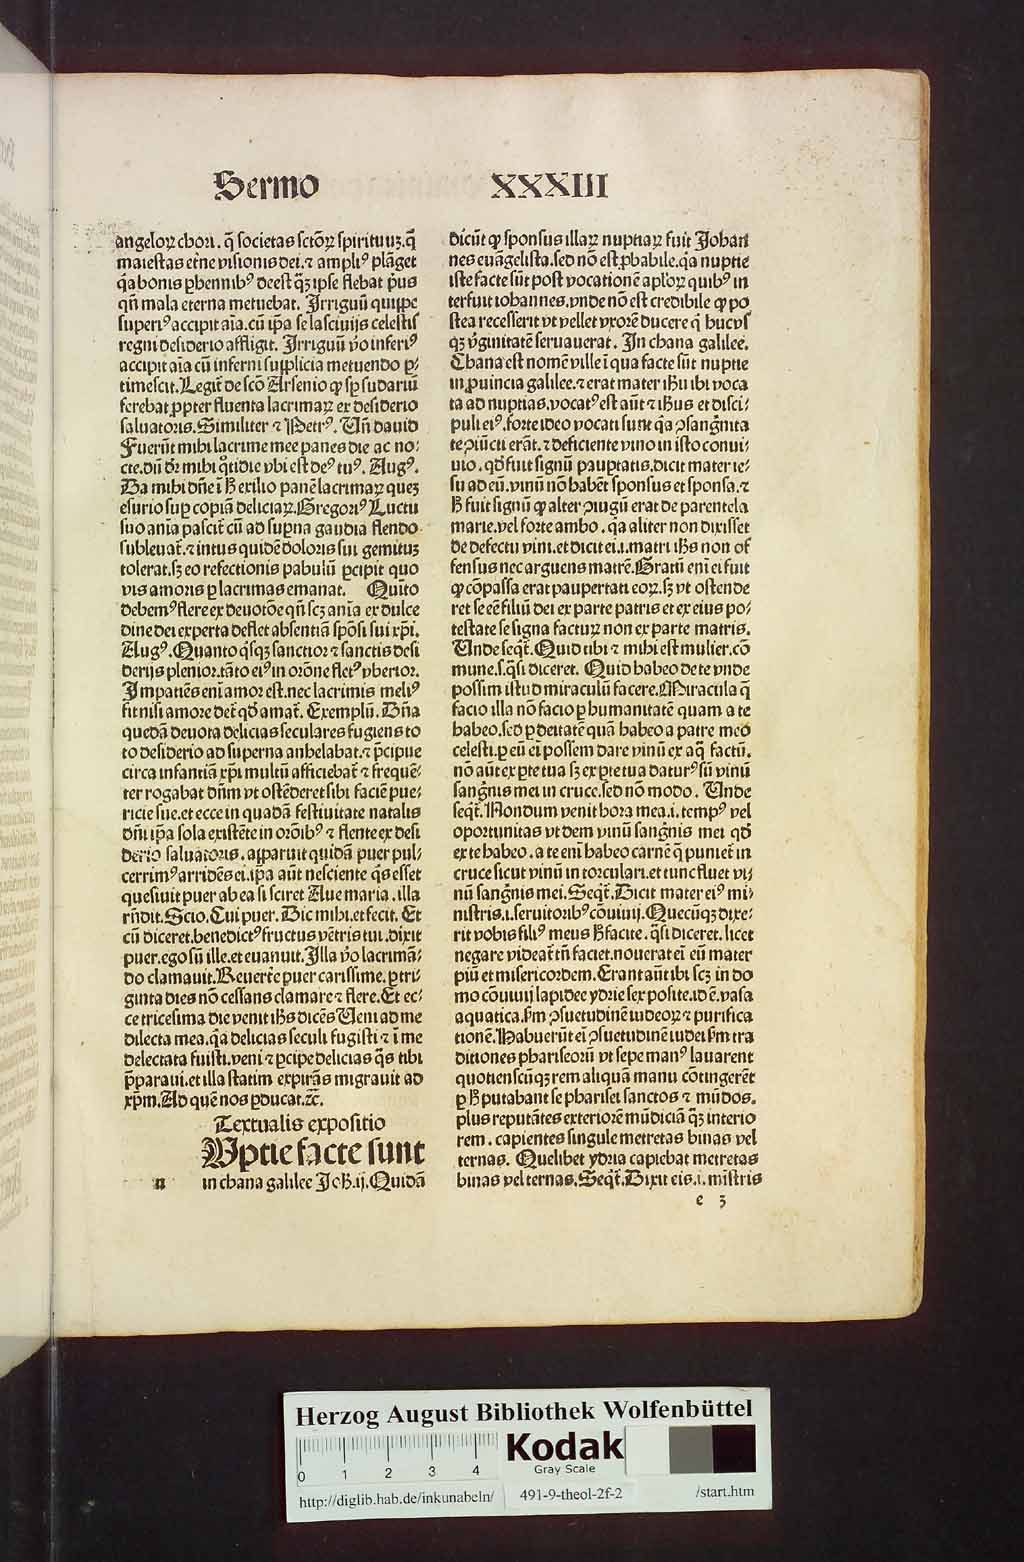 Sermo XXXIII
angeloꝝ chori. q̃ societas sctõꝝ spirituuꝫ. q̃
maiestas et̾ne visionis dei. ⁊ ampliꝰ plãget
q̃a bonis ꝑhennibꝰ deest q̃ꝫ ipse flebat p̾us
qñ mala eterna metuebat. Irriguũ quippe
superiꝰ accipit aĩa. cũ ip̃a se lasciuijs celestis
regni desiderio affligit. Irriguũ v̾o inferiꝰ
accipit aĩa cũ inferni supplicia metuendo ꝑ⸗
timescit. Legit̃ de scõ Arsenio ꝙ sꝑ sudariũ
ferebat ꝓpter fluenta lacrimaꝝ ex desiderio
saluatoris. Similiter ⁊ Petrꝰ. Uñ dauid
Fuerũt mihi lacrime mee panes die ac no⸗
cte. dũ d̃r mihi q̊tidie vbi est deꝰ tuꝰ. Augꝰ.
Da mihi dñe ĩ h̾ exilio panẽ lacrimaꝝ queꝫ
esurio suꝑ copiã deliciaꝝ. Gregoriꝰ Luctu
suo anĩa pascit̃ cũ ad suꝑna gaudia flendo
subleuat̃. ⁊ intus quidẽ doloris sui gemituꝫ
tolerat. sꝫ eo refectionis pabulũ ꝑcipit quo
vis amoris ꝑ lacrimas emanat. Quĩto
debemꝰ flere ex deuotõe qñ scꝫ anĩa ex dulce
dine dei experta deflet absentiã spõsi sui xp̃i.
Augꝰ. Quanto q̃sqꝫ sanctior ⁊ sanctis desi
derijs plenior. tãto eiꝰ in orõne fletꝰ vberior.
Impatiẽs enĩ amor est. nec lacrimis meliꝰ
fit nisi amore det̃ qd̾ amat̃. Exemplũ. Dña
quedã deuota delicias seculares fugiens to
to desiderio ad superna anhelabat. ⁊ p̃cipue
circa infantiã xp̃i multũ afficiebat̃ ⁊ frequẽ⸗
ter rogabat dñm vt ostẽderet sibi faciẽ pue⸗
ricie sue. et ecce in quadã festiuitate natalis
dñi ip̃a sola existẽte in orõibꝰ ⁊ flente ex desi
derio saluatoris. apparuit quidã puer pul⸗
cerrimꝰ arridẽs ei. ip̃a aũt nesciente q̃s esset
quesiuit puer ab ea si sciret Aue maria. illa
rñdit. Scio. Cui puer. Dic mihi. et fecit. Et
cũ diceret. benedictꝰ fructus vẽtris tui. dixit
puer. ego sũ ille. et euanuit. Illa v̾o lacrimã⸗
do clamauit. Reuerte̾ puer carissime. ꝑ tri⸗
ginta dies nõ cessans clamare ⁊ flere. Et ec⸗
ce tricesima die venit ihs̃ dicẽs Ueni ad me
dilecta mea. q̃a delicias seculi fugisti ⁊ ĩ me
delectata fuisti. veni ⁊ ꝑcipe delicias q̃s tibi
p̃paraui. et illa statim expirãs migrauit ad
xp̃m. Ad quẽ nos ꝑducat. ⁊c̃.
Textualis expositio
Uptie facte sunt
n in chana galilee Joh̾. ij. Quidã
dicũt ꝙ sponsus illaꝝ nuptiaꝝ fuit Johan
nes euãgelista. sed nõ est ꝓbabile. q̃a nuptie
iste facte sũt post vocationẽ apl̾oꝝ quibꝰ in
terfuit iohannes. vnde nõ est credibile ꝙ po
stea recesserit vt vellet vxorẽ ducere q̃ hucus
qꝫ v̾ginitatẽ seruauerat. In chana galilee.
Chana est nomẽ ville ĩ qua facte sũt nuptie
in ꝓuincia galilee. ⁊ erat mater ihũ ibi voca
ta ad nuptias. vocatꝰ est aũt ⁊ ihũs et disci⸗
puli eiꝰ. forte ideo vocati sunt q̃a ꝯsang̾nita
te ꝯiũcti erãt. ⁊ deficiente vino in isto conui⸗
uio. qd̾ fuit signũ pauꝑtatis. dicit mater ie⸗
su ad eũ. vinũ nõ habẽt sponsus et sponsa. ⁊
h̾ fuit signũ ꝙ alter ꝯiugũ erat de parentela
marie. vel forte ambo. q̃a aliter non dixisset
de defectu vini. et dicit ei. i. matri ihs̃ non of
fensus nec arguens matrẽ. Gratũ enĩ ei fuit
ꝙ cõpassa erat paupertati eoꝝ. sꝫ vt ostende
ret se eẽ filiũ dei ex parte patris et ex eius po⸗
testate se signa factuꝝ non ex parte matris.
Unde seqt̃. Quid tibi ⁊ mihi est mulier. cõ
mune. s. q̃si diceret. Quid habeo de te vnde
possim istud miraculũ facere. Miracula q̃
facio illa nõ facio ꝑ humanitatẽ quam a te
habeo. sed ꝑ deitatẽ quã habeo a patre meo
celesti. ꝑ eũ eĩ possem dare vinũ ex aq̃ factũ.
nõ aũt ex ꝑte tua sꝫ ex ꝑte tua daturꝰ sũ vinũ
sang̾nis mei in cruce. sed nõ modo. Unde
seqt̃. Nondum venit hora mea. i. tempꝰ vel
oportunitas vt dem vinũ sang̾nis mei qd̾
ex te habeo. a te enĩ habeo carnẽ q̃ puniet̃ in
cruce sicut vinũ in torculari. et tunc fluet vi⸗
nũ sang̾nis mei. Seqt̃. Dicit mater eiꝰ mi⸗
nistris. i. seruitoribꝰ cõuiuij. Quecũqꝫ dixe⸗
rit vobis filiꝰ meus h̾ facite. q̃si diceret. licet
negare videat̃ tñ faciet. nouerat eĩ eũ mater
piũ et misericordem. Erant aũt ibi scꝫ in do
mo cõuiuij lapidee ydrie sex posite. id ẽ. vasa
aquatica. s̾m ꝯsuetudinẽ iudeoꝝ ⁊ purifica
tionẽ. Habuerũt eĩ ꝯsuetudinẽ iudei s̾m tra
ditiones phariseorũ vt sepe manꝰ lauarent
quotienscũqꝫ rem aliquã manu cõtingerẽt
ꝑ h̾ putabant se pharisei sanctos ⁊ mũdos.
plus reputãtes exteriorẽ mũdiciã q̃ꝫ interio
rem. capientes singule metretas binas vel
ternas. Quelibet ydria capiebat metretas
binas vel ternas. Seqt̃. Dixit eis. i. mĩstris
e 3
Herzog August Bibliothek Wolfenbüttel
0 1 2 3 4
Kodak
Gray Scale
http://diglib.hab.de/inkunabeln/ 491-9-theol-2f-2 /start.htm